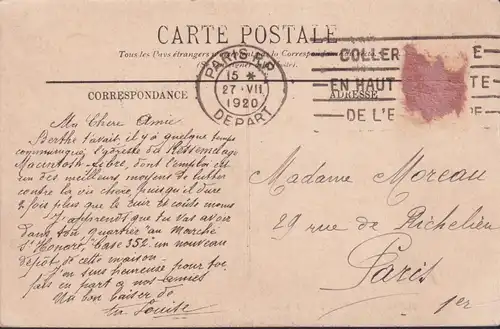 CARTE POSTALE
Tous les Pays étrangers n'acceptent pas la Correspondance
CORRESPONDANCE
ADRESSE
PARIS R.P.
15 *
27 · VII
1920
DEPART
COLLER
EN HAUT
DE L'E
Ma Chère Amie
Berthe t'avait, il y a quelque temps
communiqué l'adresse du Ressemelage
Macintosh-Fibre, dont l'emploi est
un des meilleurs moyens de lutter
contre la vie chère, puisqu'il dure
2 fois plus que le cuir et coûte moins
J'apprends que tu vas avoir
dans ton quartier "au Marché
St Honoré, Case 352" un nouveau
dépôt de cette maison.
J'en suis heureuse pour toi
fais en part à nos amies
Un bon baiser de
ta Louise
Madame Moreau
29 rue de Richelieu
Paris
1er